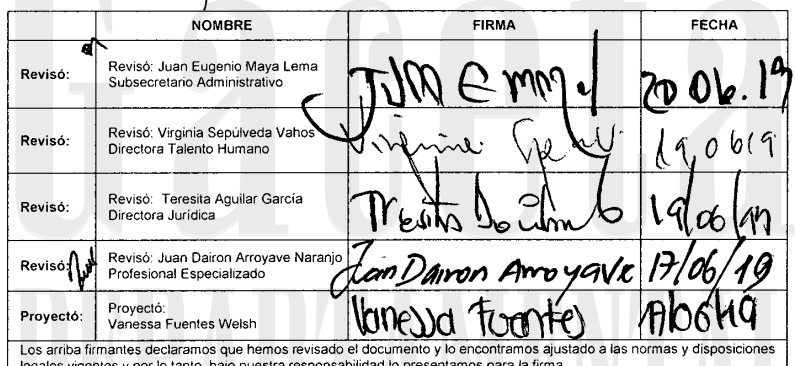 NOMBRE FIRMA FECHA
Revisó: Revisó: Juan Eugenio Maya Lema
Subsecretario Administrativo 20 06. 19
Revisó: Revisó: Virginia Sepúlveda Vahos
Directora Talento Humano Virginia 19 06 19
Revisó: Revisó: Teresita Aguilar García
Directora Jurídica 19/06/19
Revisó: Revisó: Juan Dairon Arroyave Naranjo
Profesional Especializado Juan Dairon Arroyave 17/06/19
Proyectó: Proyectó:
Vanessa Fuentes Welsh Vanessa Fuentes 17/06/19
Los arriba firmantes declaramos que hemos revisado el documento y lo encontramos ajustado a las normas y disposiciones
legales vigentes y por lo tanto, bajo nuestra responsabilidad lo presentamos para la firma.